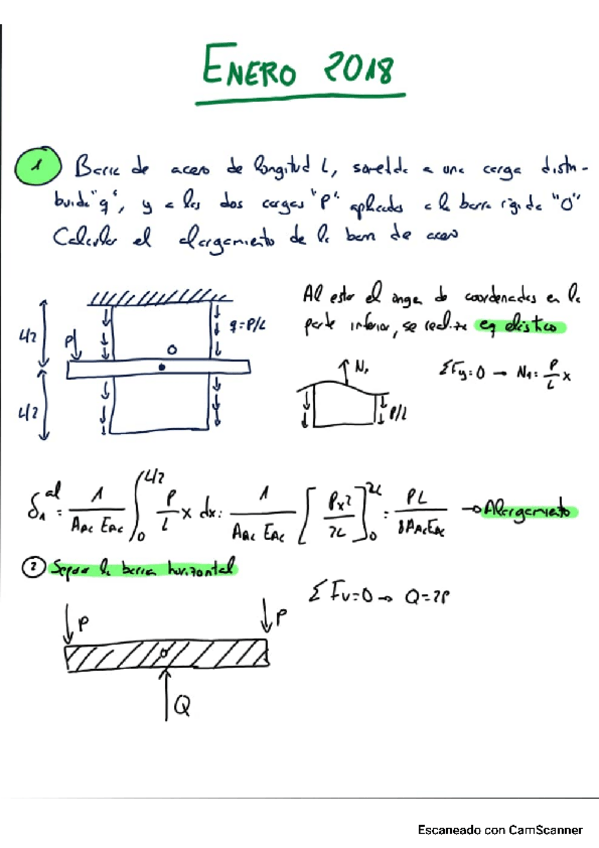 ENERO 2018
1 Barra de acero de longitud L, sometida a una carga distri-
buida "q", y a las dos cargas "P" aplicadas a la barra rígida "O"
Calcular el alargamiento de la barra de acero
Al estar el origen de coordenadas en la
parte inferior, se realiza eq elástico
L/2
P
O
q=P/L
N₁
ΣFy=0 → N₁= P/L x
L/2
P/L
δ₁ᵃˡ = 1/(A_AC E_AC) ∫₀^(L/2) P/L x dx = 1/(A_AC E_AC) [Px²/2L]₀^(2L) = PL/(8A_AC E_AC) → Alargamiento
2 Separo la barra horizontal
ΣFv=0 → Q=2P
P
P
O
Q
Escaneado con CamScanner